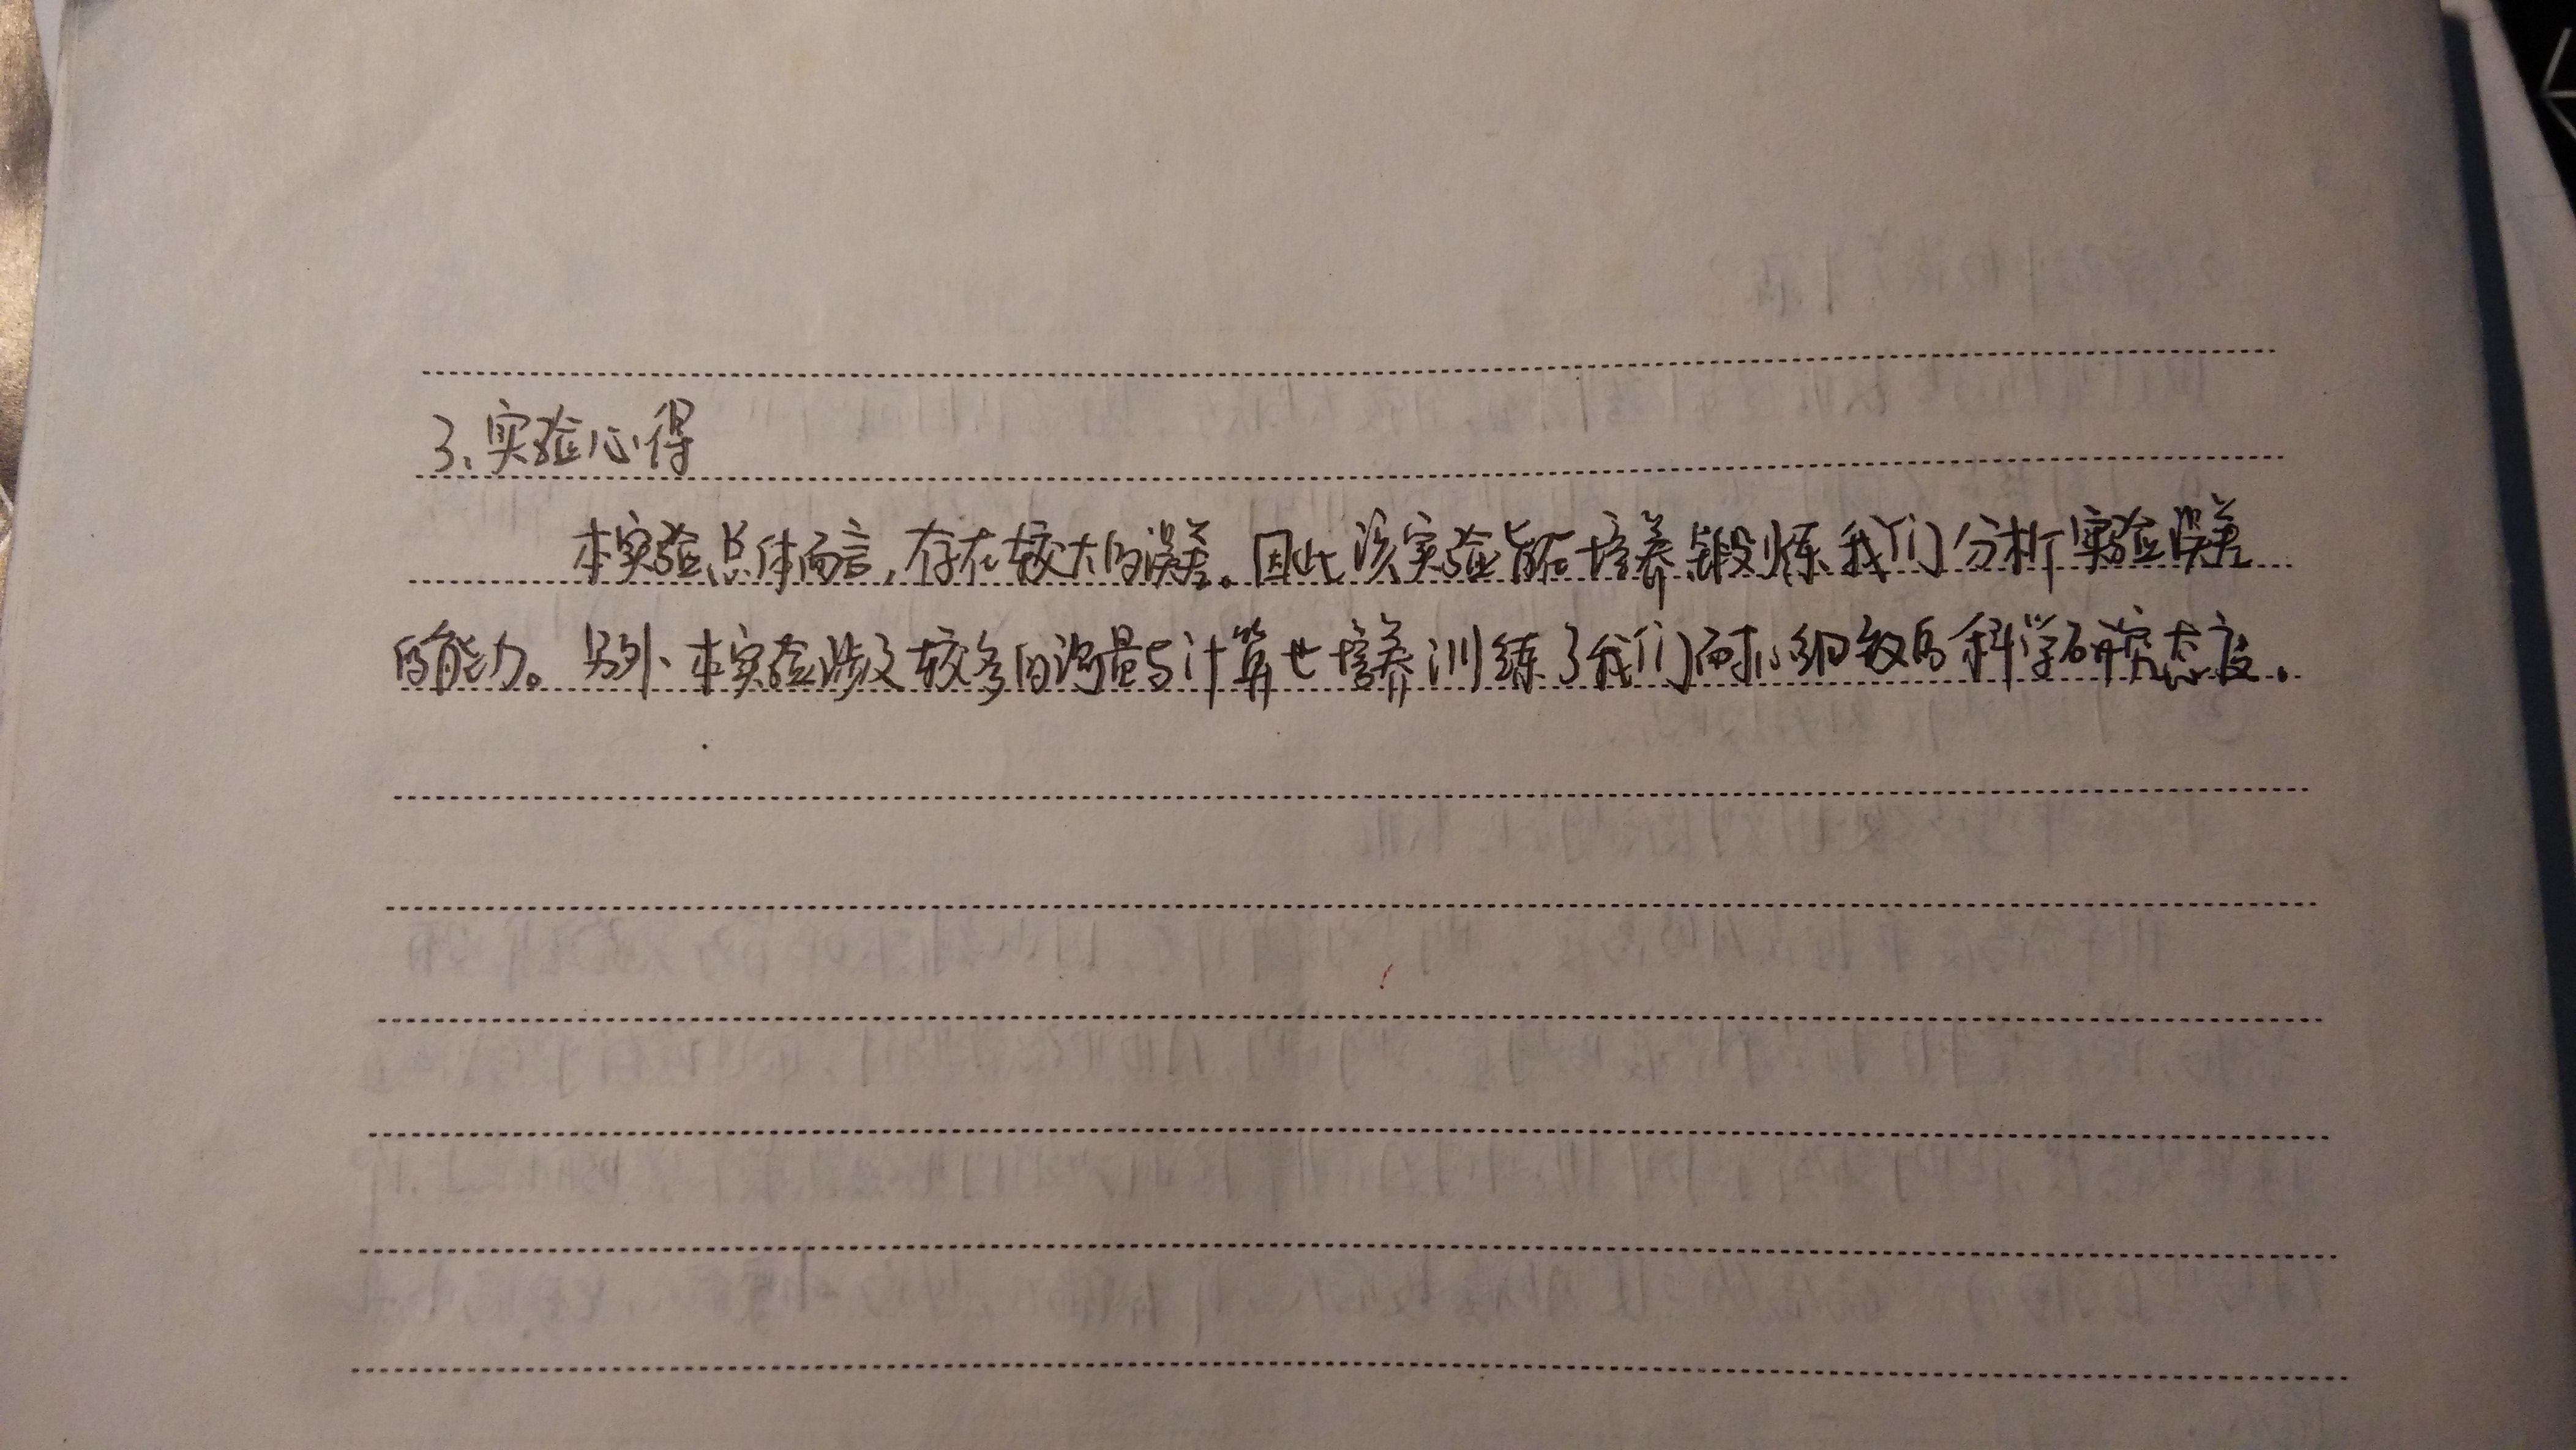 3、实验心得
本实验总体而言，存在较大的误差。因此该实验旨在培养锻炼我们分析实验误差
的能力。另外、本实验涉及较多的测量与计算也培养训练了我们耐心细致的科学研究态度.